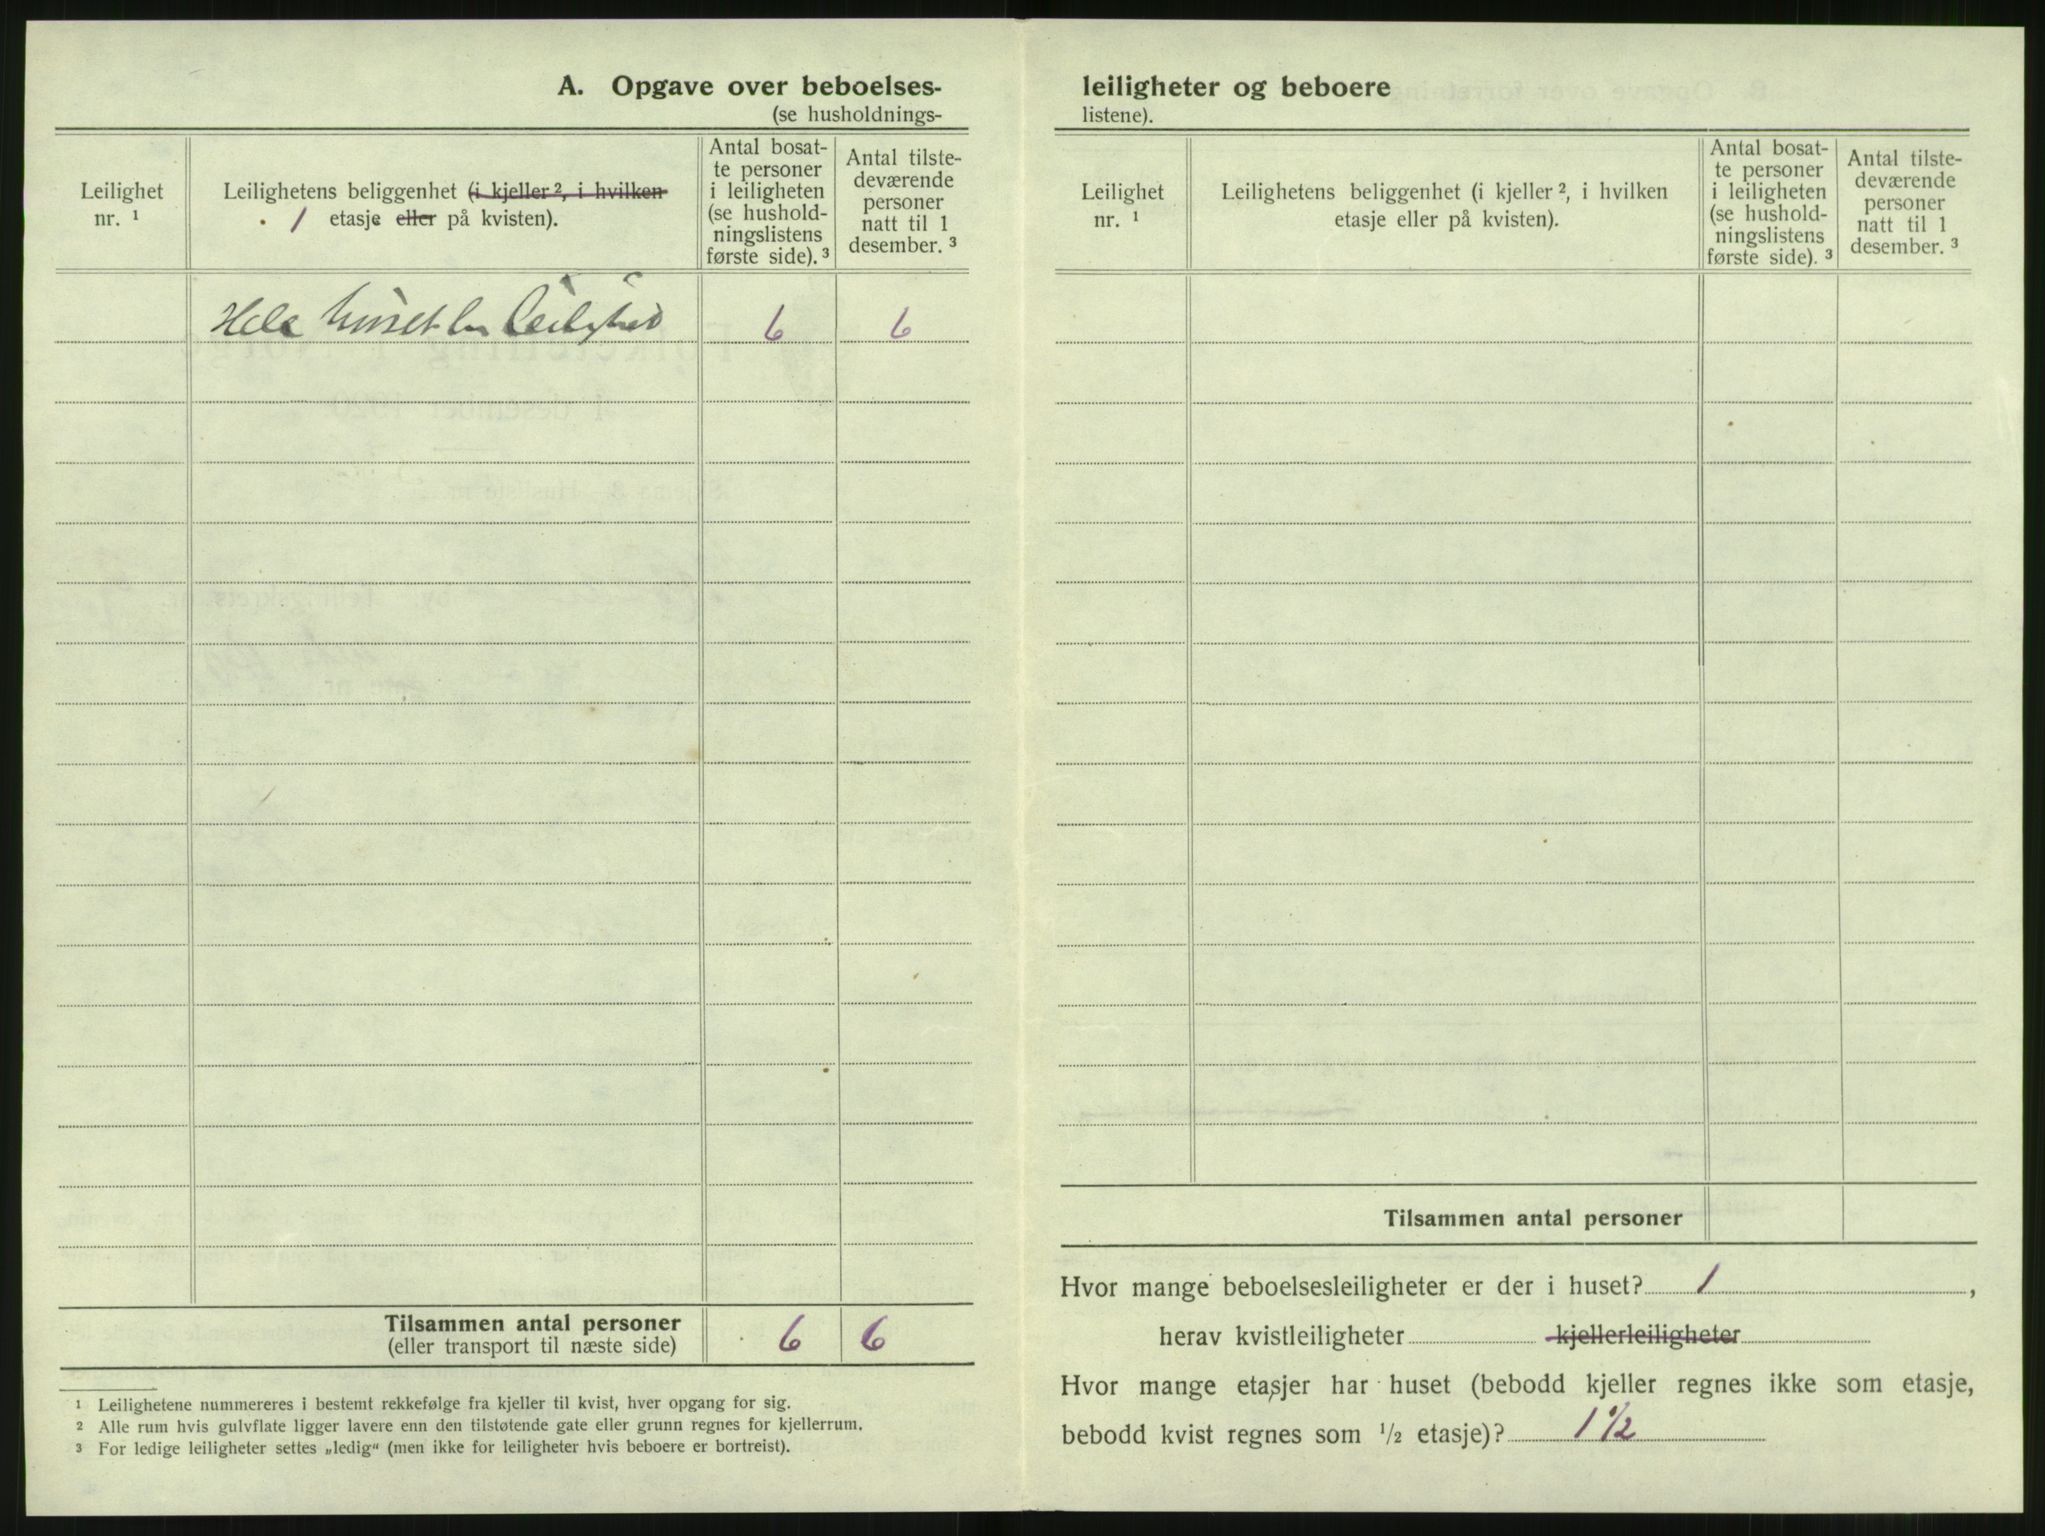 A. Opgave over beboelses-
(se husholdnings-
Leilighet
nr. ¹
Leilighetens beliggenhet (i kjeller ², i hvilken
1 etasje eller på kvisten).
Antal bosat-
te personer
i leiligheten
(se hushold-
ningslistens
første side). ³
Antal tilste-
deværende
personer
natt til 1
desember. ³
Hele huset en Leilighed 6 6
Tilsammen antal personer 6 6
(eller transport til næste side)
¹ Leilighetene nummereres i bestemt rekkefølge fra kjeller til kvist, hver opgang for sig.
² Alle rum hvis gulvflate ligger lavere enn den tilstøtende gate eller grunn regnes for kjellerrum.
³ For ledige leiligheter settes „ledig“ (men ikke for leiligheter hvis beboere er bortreist).
leiligheter og beboere
listene).
Leilighet
nr. ¹
Leilighetens beliggenhet (i kjeller ², i hvilken
etasje eller på kvisten).
Antal bosat-
te personer
i leiligheten
(se hushold-
ningslistens
første side). ³
Antal tilste-
deværende
personer
natt til 1
desember. ³
Tilsammen antal personer
Hvor mange beboelsesleiligheter er der i huset? 1,
herav kvistleiligheter kjellerleiligheter
Hvor mange etasjer har huset (bebodd kjeller regnes ikke som etasje,
bebodd kvist regnes som ½ etasje)? 1 ½